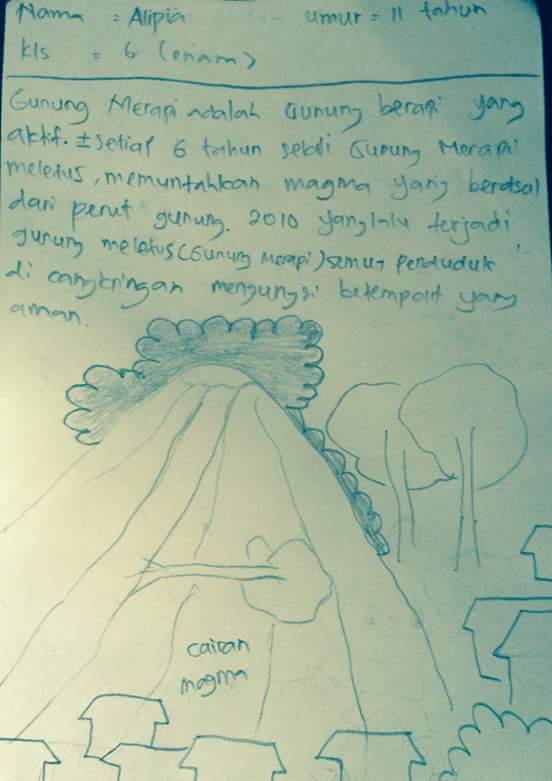 Nama : Alipia umur = 11 tahun
kls = 6 (enam)
Gunung Merapi adalah Gunung berapi yang
aktif. ± setiap 6 tahun sekali Gunung Merapi
meletus, memuntahkan magma yang berasal
dari perut gunung. 2010 yang lalu terjadi
gunung meletus (Gunung Merapi) semua penduduk
di cangkringan mengungsi ketempat yang
aman.
cairan
magma